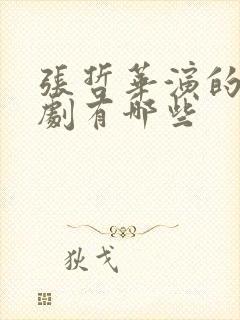 張哲華演的
劇有哪些
狄戈